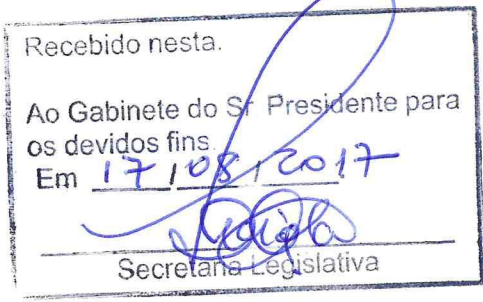 Recebido nesta.
Ao Gabinete do Sr Presidente para
os devidos fins
Em 17/08/2017
Secretaria Legislativa